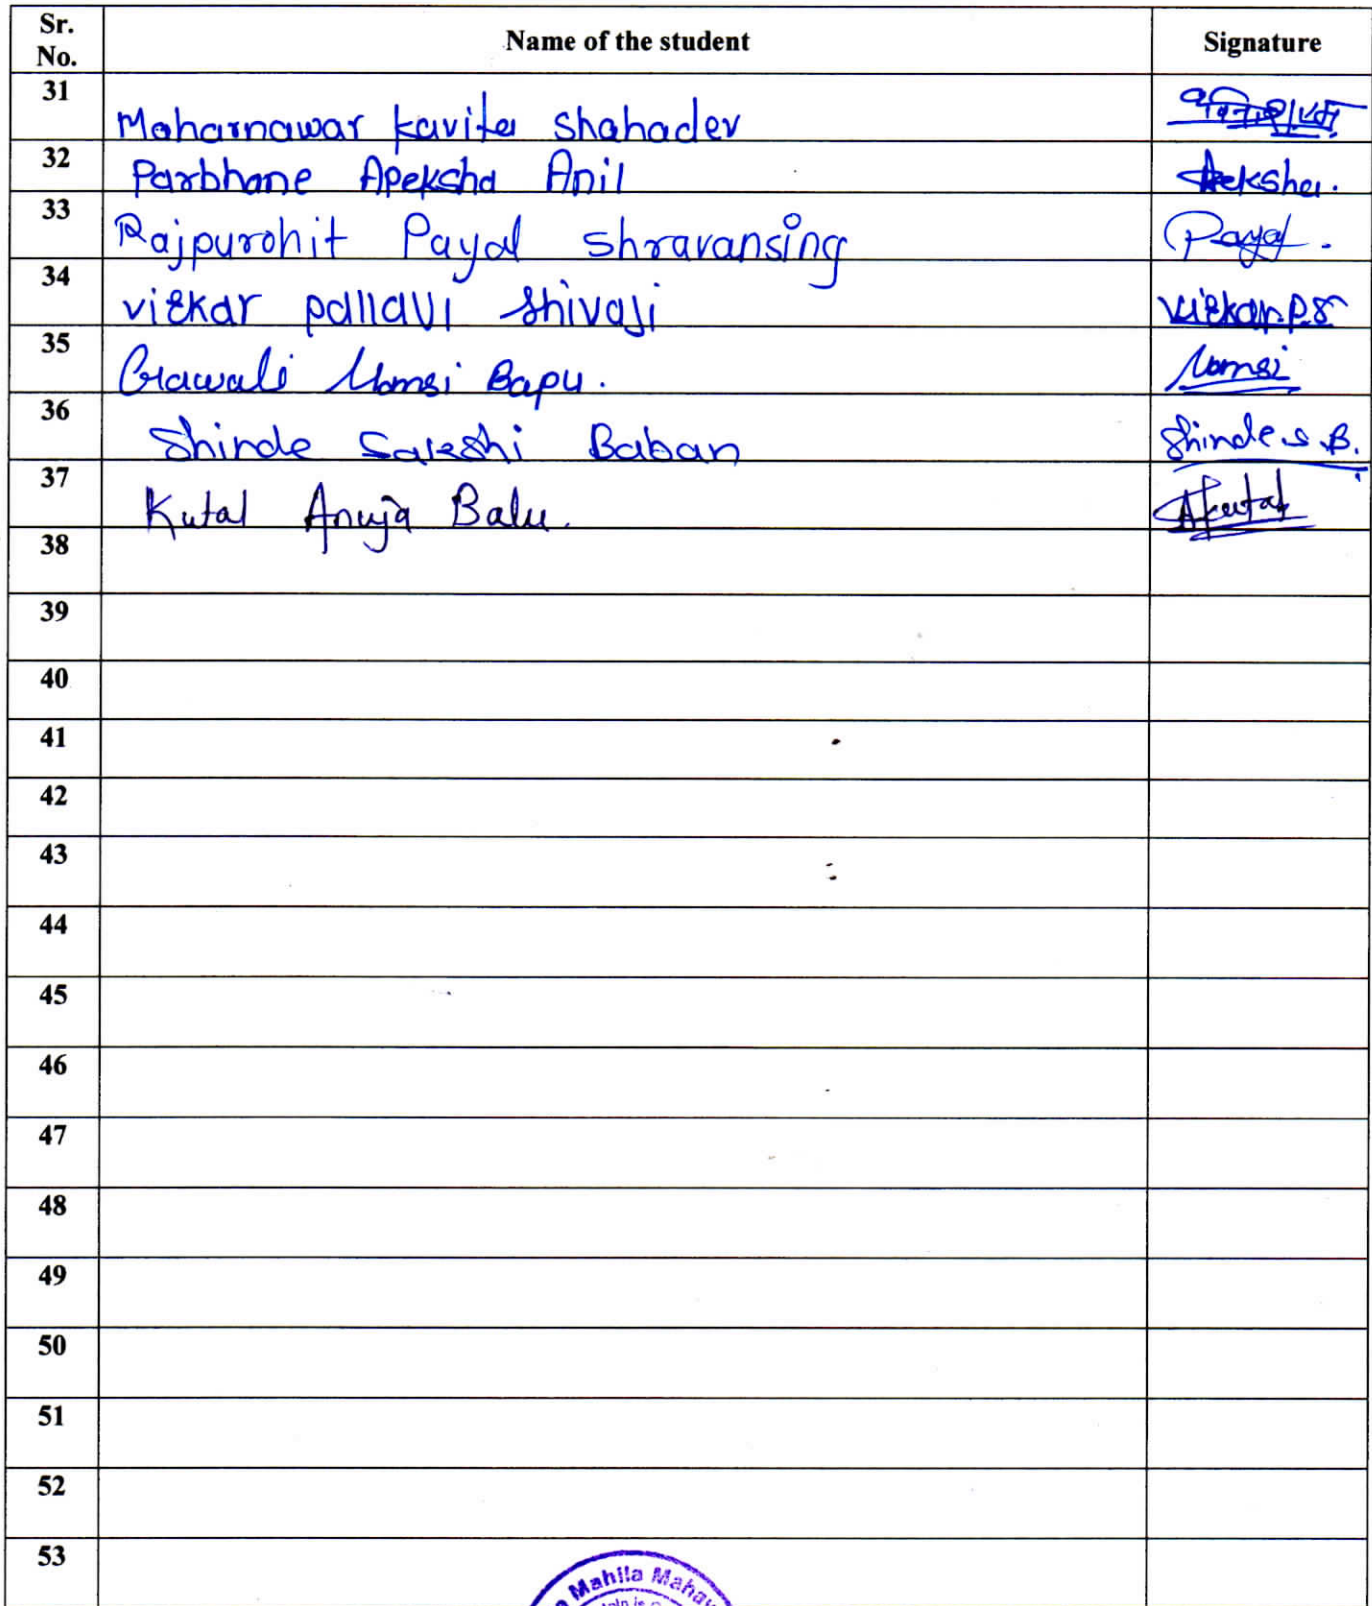 Sr. No. Name of the student Signature
31 Maharnawar kavita shahadev
32 Parbhane Apeksha Anil Aeksha.
33 Rajpurohit Payal shravansing Payal.
34 pallavi shivaji
35 Gawali Bapu.
36 Shinde Sakshi Baban Shinde s B.
37 Kutal Anuja Balu. AKutal
38
39
40
41
42
43
44
45
46
47
48
49
50
51
52
53
Mahila